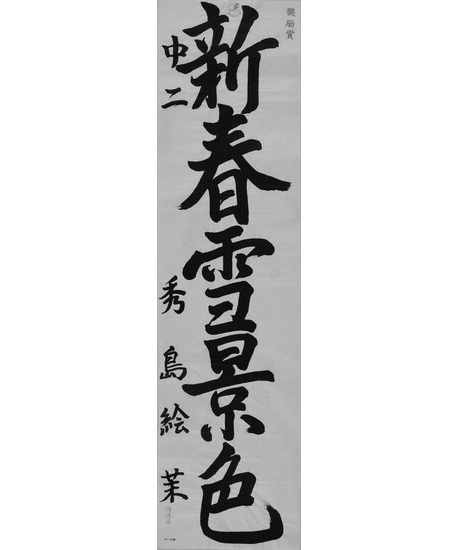 奨励賞
新春雪景色
中二 秀島絵茉